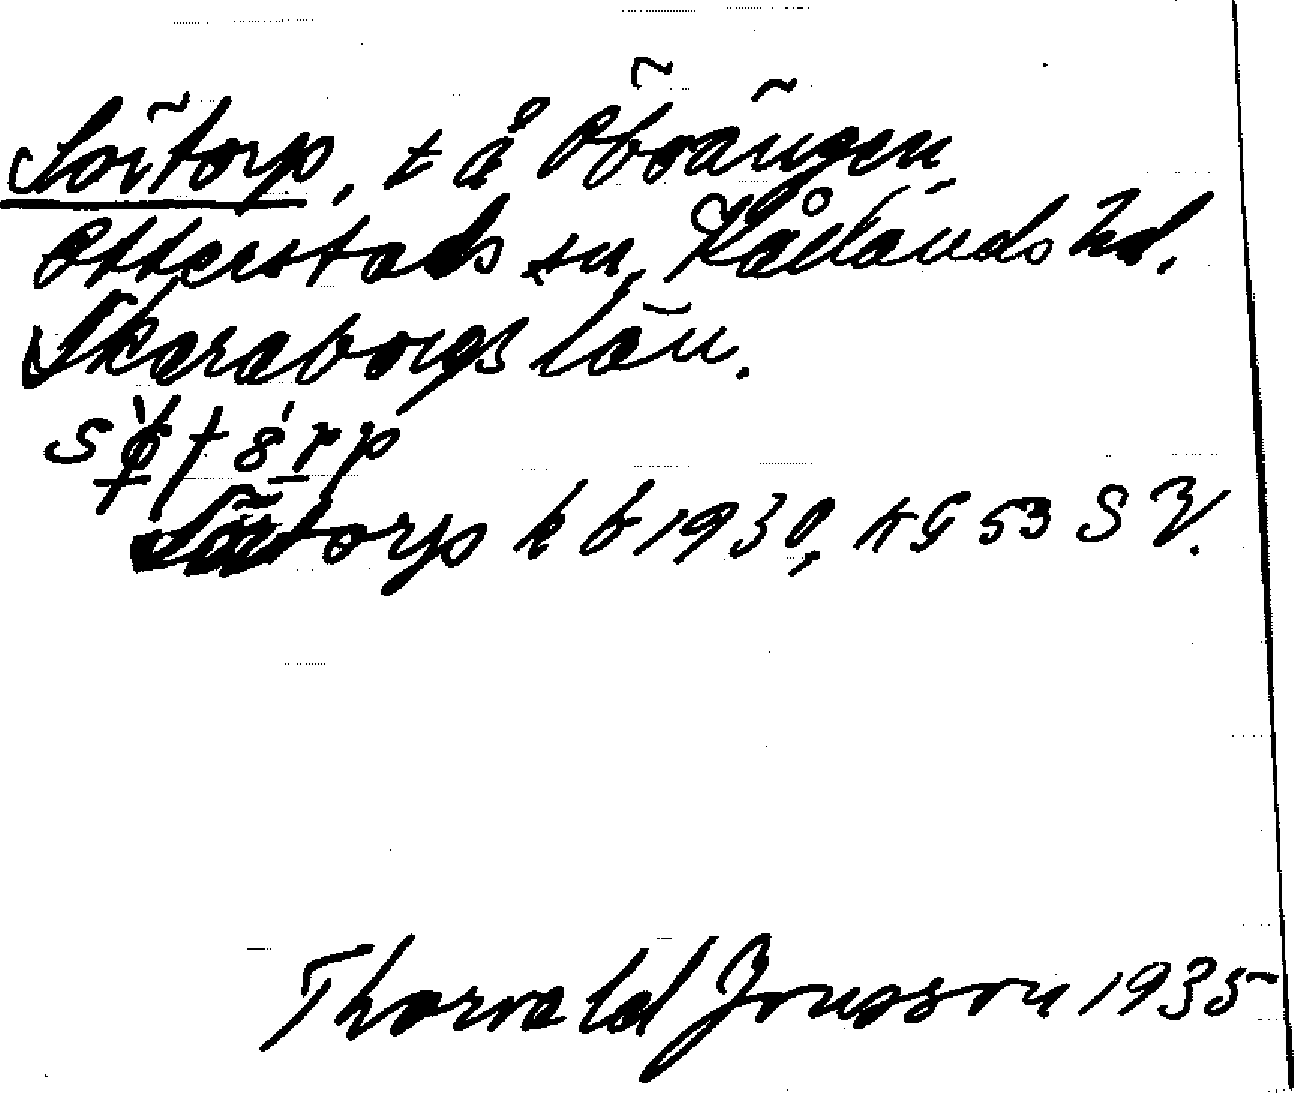 Sörtorp, t å Öboängen
Otterstads sn, Kållands hd.
Skaraborgs län.
Sörtorp k b 1930, KG 53 SV.
Thorvald Jonsson 1935